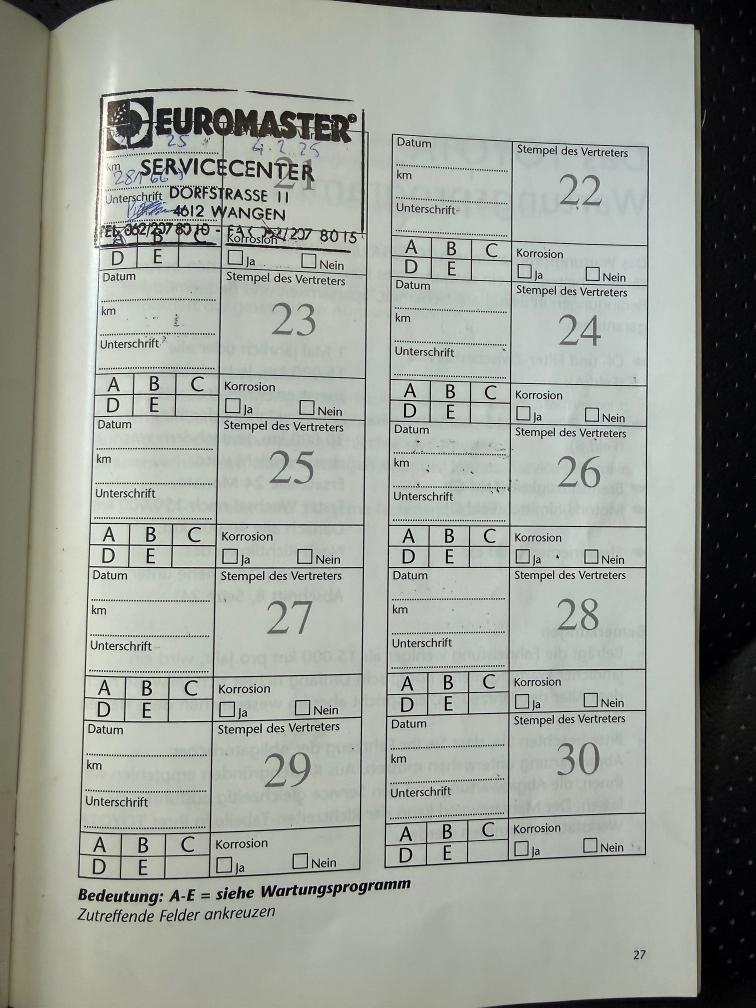 EUROMASTER®
25
4.2.25
km
SERVICECENTER
21
Unterschrift
DORFSTRASSE 11
4612 WANGEN
TEL 062/207 80 10 - FAX 062/207 80 15
A B C
Korrosion
D E
Ja Nein
Datum
Stempel des Vertreters
km
22
Unterschrift
A B C
Korrosion
D E
Ja Nein
Datum
Stempel des Vertreters
km
23
Unterschrift
A B C
Korrosion
D E
Ja Nein
Datum
Stempel des Vertreters
km
24
Unterschrift
A B C
Korrosion
D E
Ja Nein
Datum
Stempel des Vertreters
km
25
Unterschrift
A B C
Korrosion
D E
Ja Nein
Datum
Stempel des Vertreters
km
26
Unterschrift
A B C
Korrosion
D E
Ja Nein
Datum
Stempel des Vertreters
km
27
Unterschrift
A B C
Korrosion
D E
Ja Nein
Datum
Stempel des Vertreters
km
28
Unterschrift
A B C
Korrosion
D E
Ja Nein
Datum
Stempel des Vertreters
km
29
Unterschrift
A B C
Korrosion
D E
Ja Nein
Datum
Stempel des Vertreters
km
30
Unterschrift
A B C
Korrosion
D E
Ja Nein
Bedeutung: A-E = siehe Wartungsprogramm
Zutreffende Felder ankreuzen
27